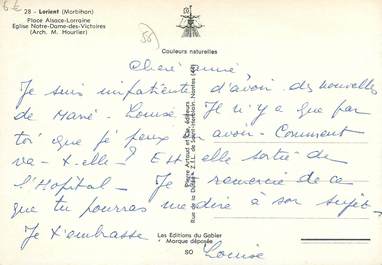 6€
28 - Lorient (Morbihan)
Place Alsace-Lorraine
Eglise Notre-Dame-des-Victoires
(Arch. M. Hourlier)
56)
Couleurs naturelles
Chère amie
Je suis impatiente d'avoir des nouvelles
de Marie-Louise. Il n'y a que par
toi que je peux en avoir - Comment
va-t-elle? Est elle sortie de
l'Hopital - Je te remercie de ce
que tu pourras me dire à son sujet.
Je t'embrasse
Louise
Pierre Artaud et Cie, éditeurs
Rue de la Z.I.L. de Saint-Herblain, Nantes (44)
Les Editions du Gabier
Marque déposée
SO